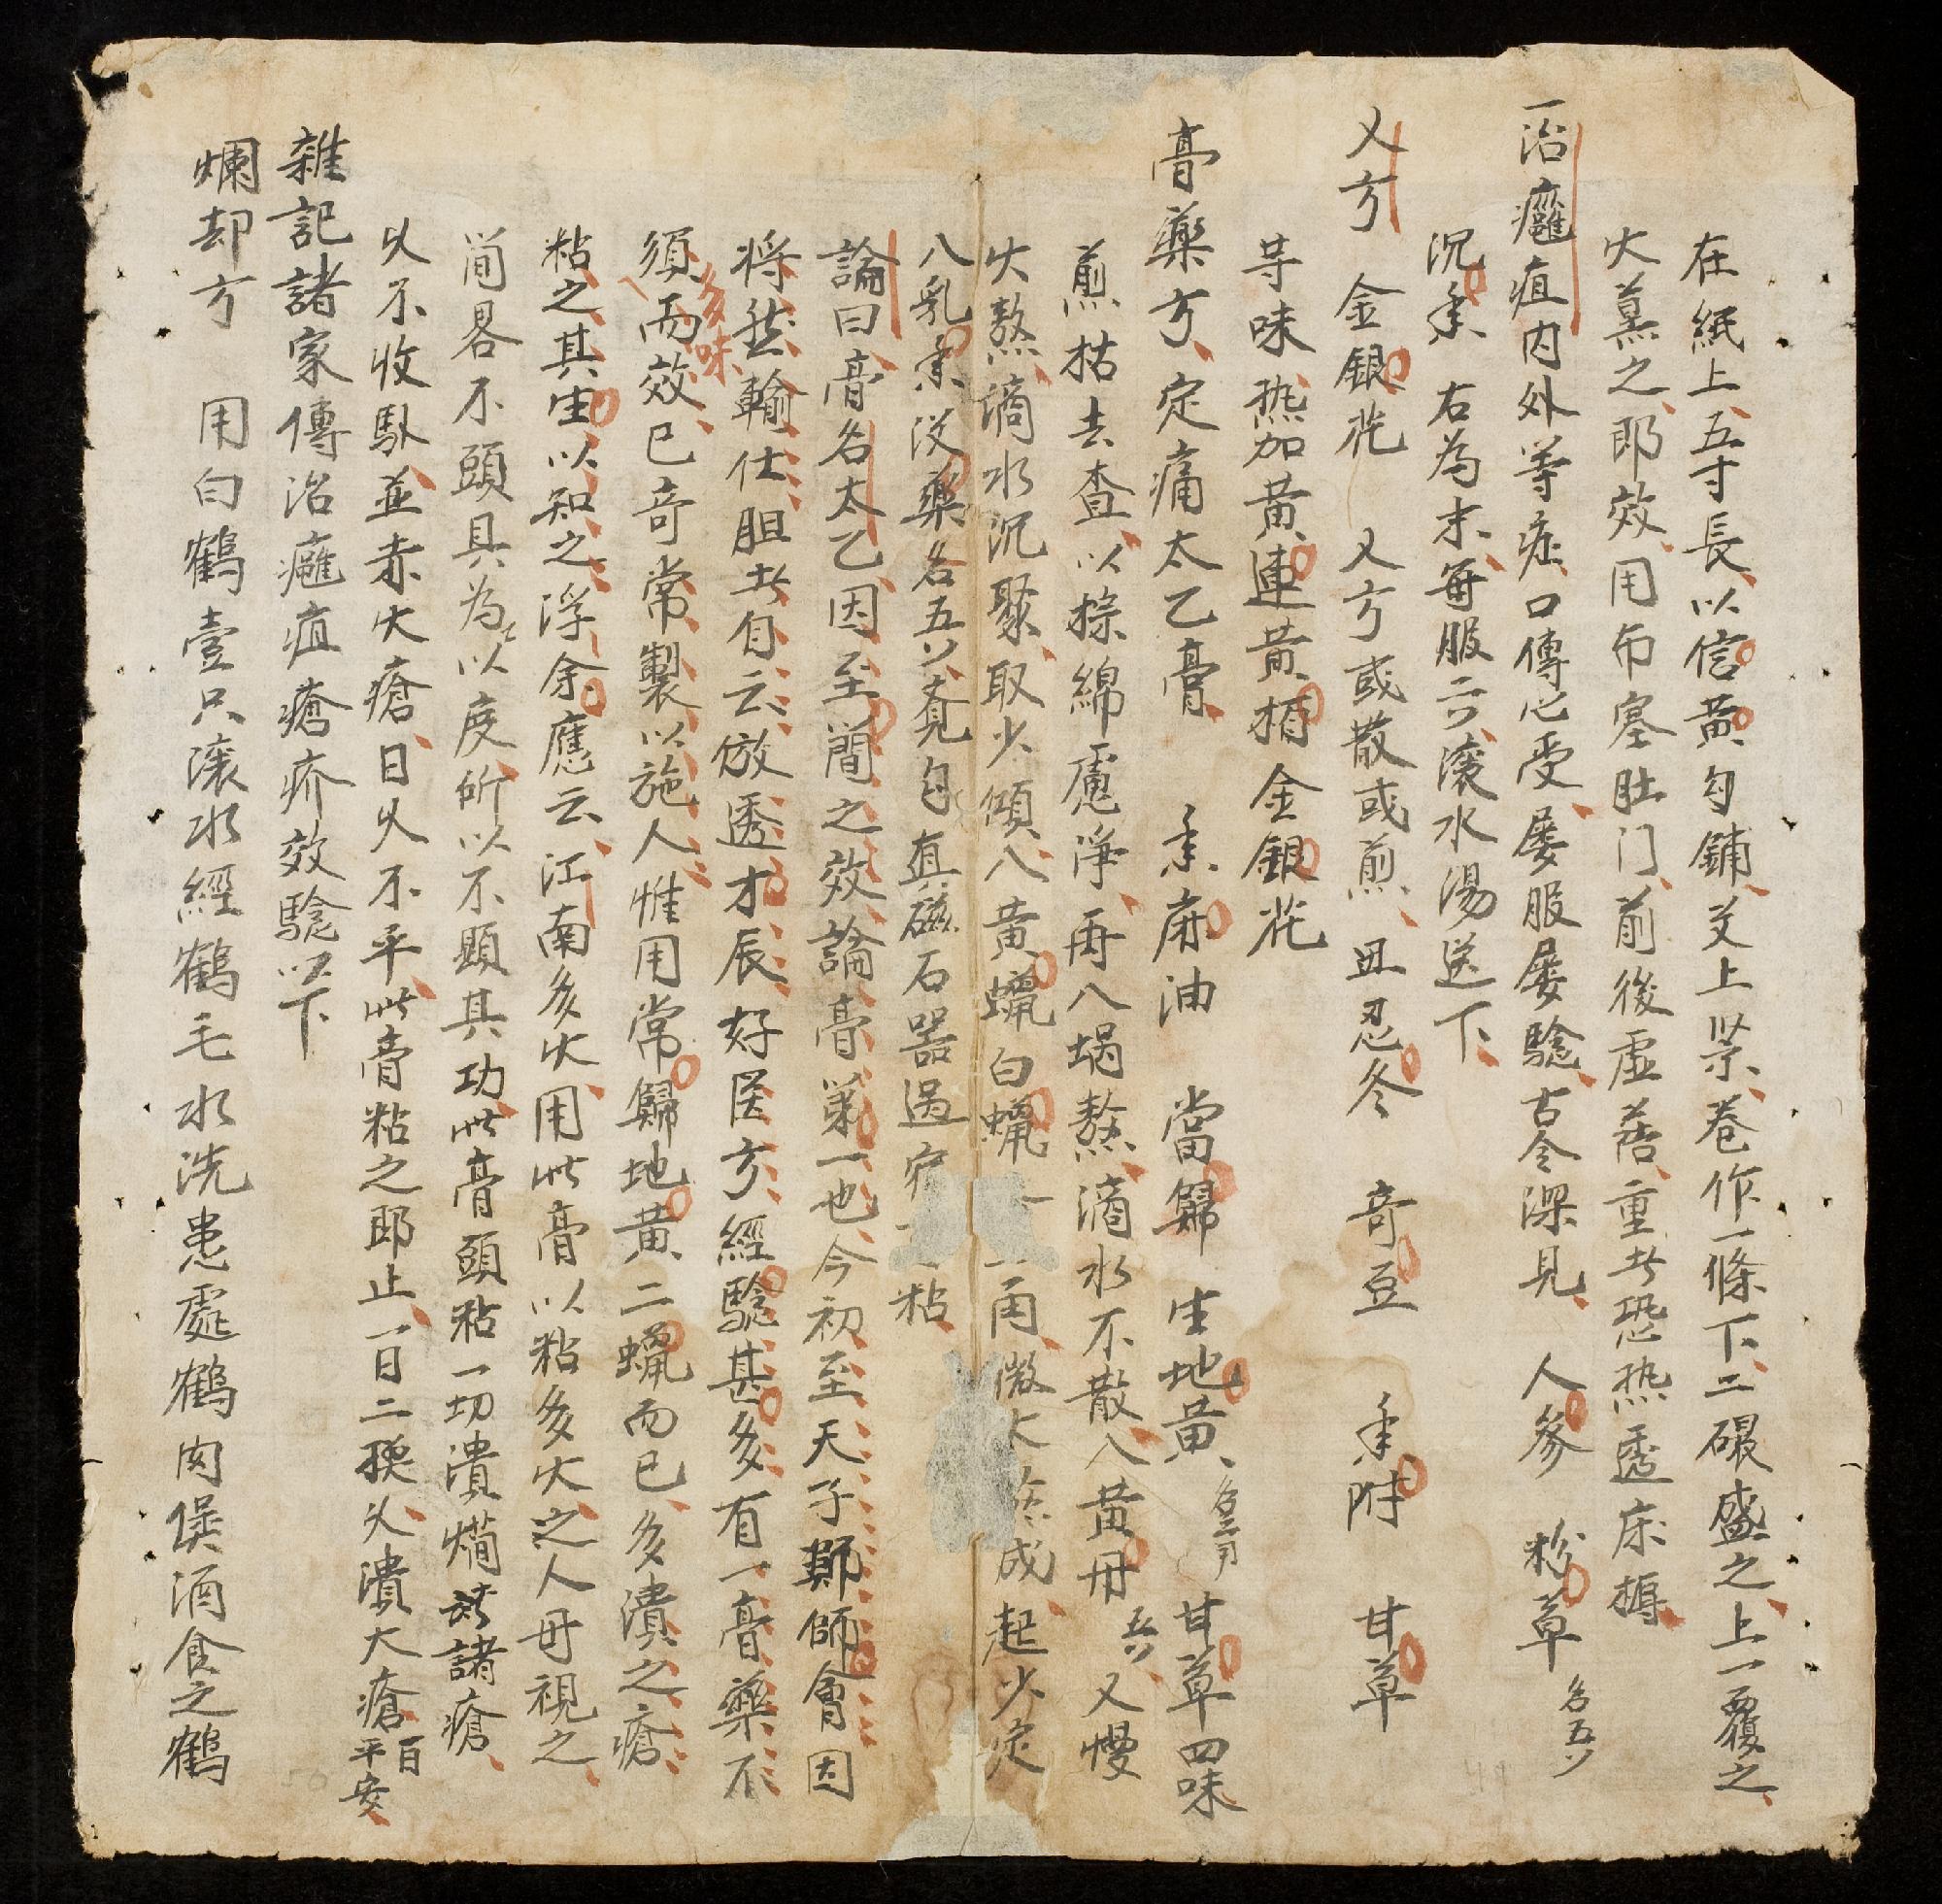 在紙上五寸長以信黃勻鋪艾上紧卷作一條下二碾盛之上一覆之
火熏之即效用布塞肚门前後虛者重者恐热透床褥
一治癰疽内外等症口傳心受屡服屡驗古今深見 人參 粉草 各五
沉香 右為末每服二滚水湯送下
又方 金銀花 又方或散或煎 皿忍冬 奇豆 香附 甘草
芽味热加黃連黃栢金銀花
膏藥方定痛太乙膏 香麻油 當歸 生地黃 各三 甘草四味
煎枯去查以棕綿慮淨再八堝熬滴水不散入黃丹 五 又慢
火熬滴水沉聚取少傾八黃蠟白蠟 一 用微火 成起少定
八乳香沒藥各五 勻真磁石器過 粘
論曰膏名太乙因至簡之效論膏第一也今初至天子鄭師會因
将 輸仕胆者自云倣透才辰好医方經驗甚多有一膏藥不
須多味而效已奇常製以施人惟用常歸地黃二蠟而已多潰之瘡
粘之其生以知之浮余應云江南多火用此膏以粘多火之人毋視之
簡畧不頭具為以度所以不顕其功此膏頭粘一切潰爛諸瘡
以不收馱並赤火瘡日久不平此膏粘之即止一日二換久潰大瘡百平安
雜記諸家傳治癰疽瘡疥效驗以下
爛却方 用白鶴壹只滚水經鶴毛水洗患處鶴肉煲酒食之鶴